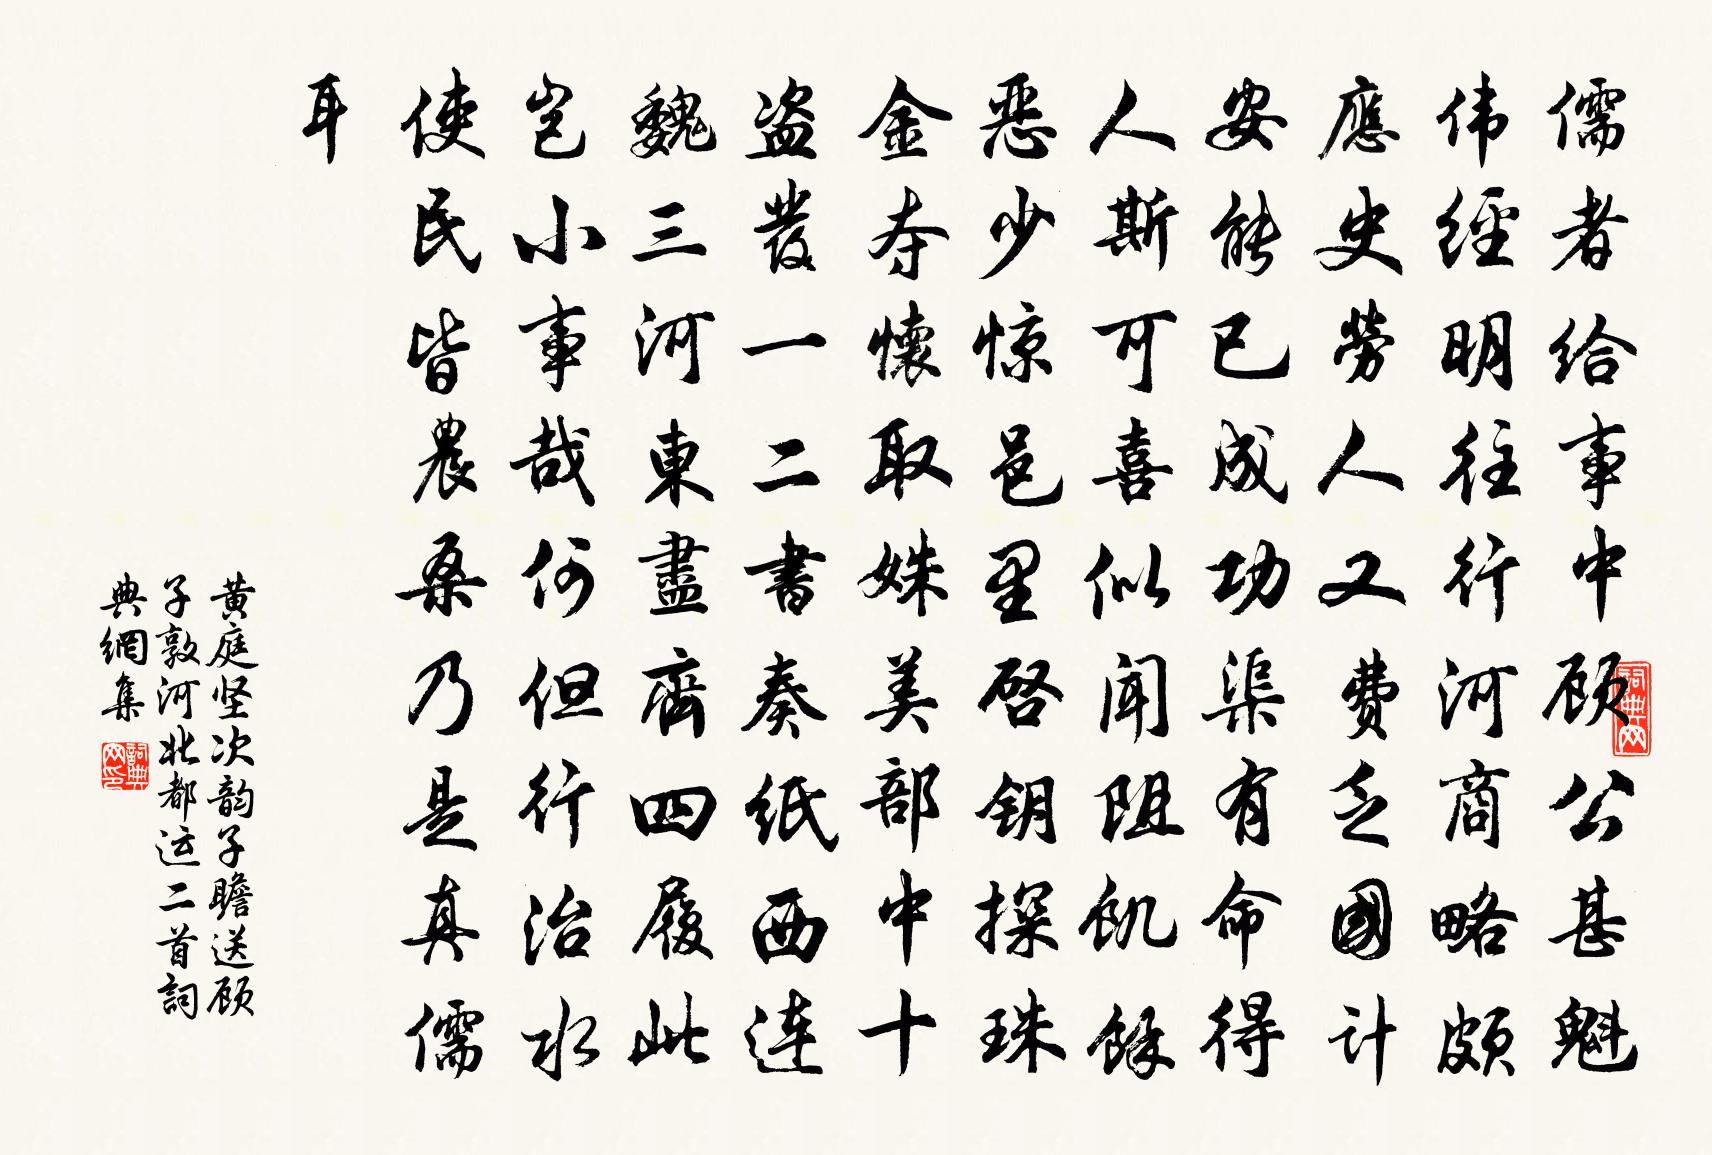 儒者给事中顾公甚魁
伟經明往行河商略頗
應史劳人又費乏國计
安能已成功渠有命得
人斯可喜似闻阻飢餘
恶少惊邑里启钥探珠
金夺懷取姝美部中十
盗發一二書奏纸西连
魏三河東盡齊四履此
岂小事哉何但行治水
使民皆農桑乃是真儒
耳
黄庭坚次韵子瞻送顾
子敦河北都运二首詞
典網集
词典网
詞典网印